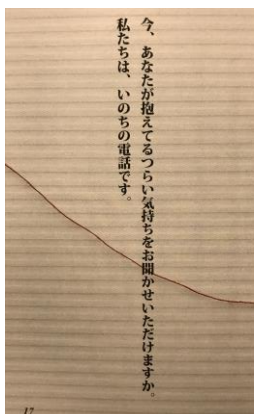 今、あなたが抱えてるつらい気持ちをお聞かせいただけますか。
私たちは、いのちの電話です。
17